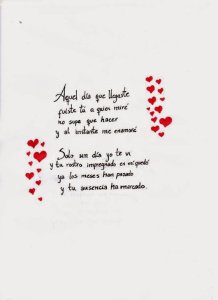 Aquel día que llegaste
fuiste tú a quien miré
no supe que hacer
y al instante me enamoré
Solo un día yo te vi
y tu rostro impregnado en mi quedó
ya los meses han pasado
y tu ausencia ha marcado.